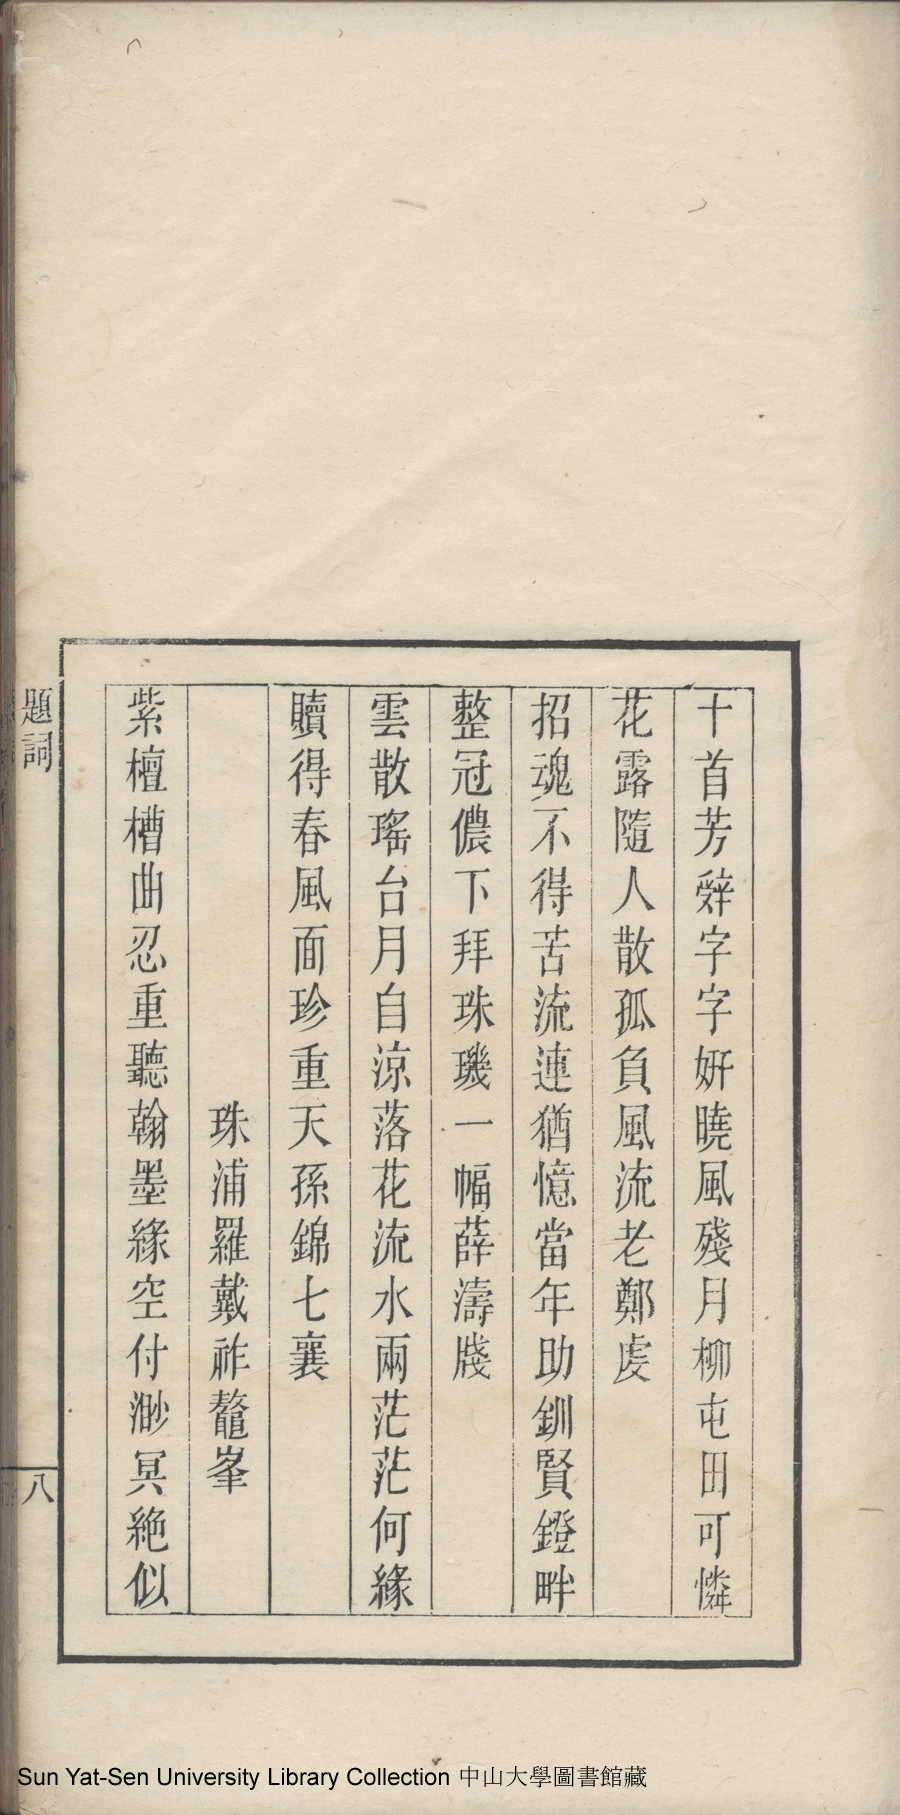 十首芳辭字字妍曉風殘月柳屯田可憐
花露隨人散孤負風流老鄭虔
招魂不得苦流連猶憶當年助釧賢鐙畔
整冠儂下拜珠璣一幅薛濤牋
雲散瑤台月自涼落花流水兩茫茫何緣
贖得春風面珍重天孫錦七襄
珠浦羅戴祚鼇峯
紫檀槽曲忍重聽翰墨緣空付渺冥絶似
題詞
八
Sun Yat-Sen University Library Collection 中山大學圖書館藏